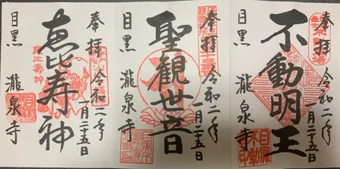 奉拝
令和二年
一月二十五日
不動明王
目黒
瀧泉寺
奉拝
令和二年
一月二十五日
聖観世音
目黒
瀧泉寺
奉拝
令和二年
一月二十五日
恵比寿神
目黒
瀧泉寺